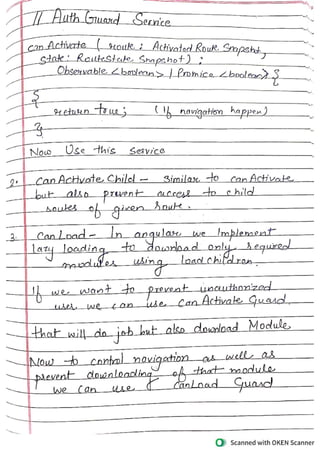 // Auth Guard Service
canActivate ( route : Activated Route Snapshot,
state : RouteState Snapshot) :
Observable <boolean> | Promice <boolean> {
{
return true; (If navigation happen)
}
Now Use this service
2. canActivateChild - Similar to canActivate
but also prevent access to child
routes of given route.
3. CanLoad - In angular we Implement
lazy loading to download only required
modules using loadchildren.
If we want to prevent unauthorized
user we can use canActivate Guard
that will do job but also download Module
Now to control navigation as well as
prevent downloading of that module
we can use canLoad Guard
Scanned with OKEN Scanner